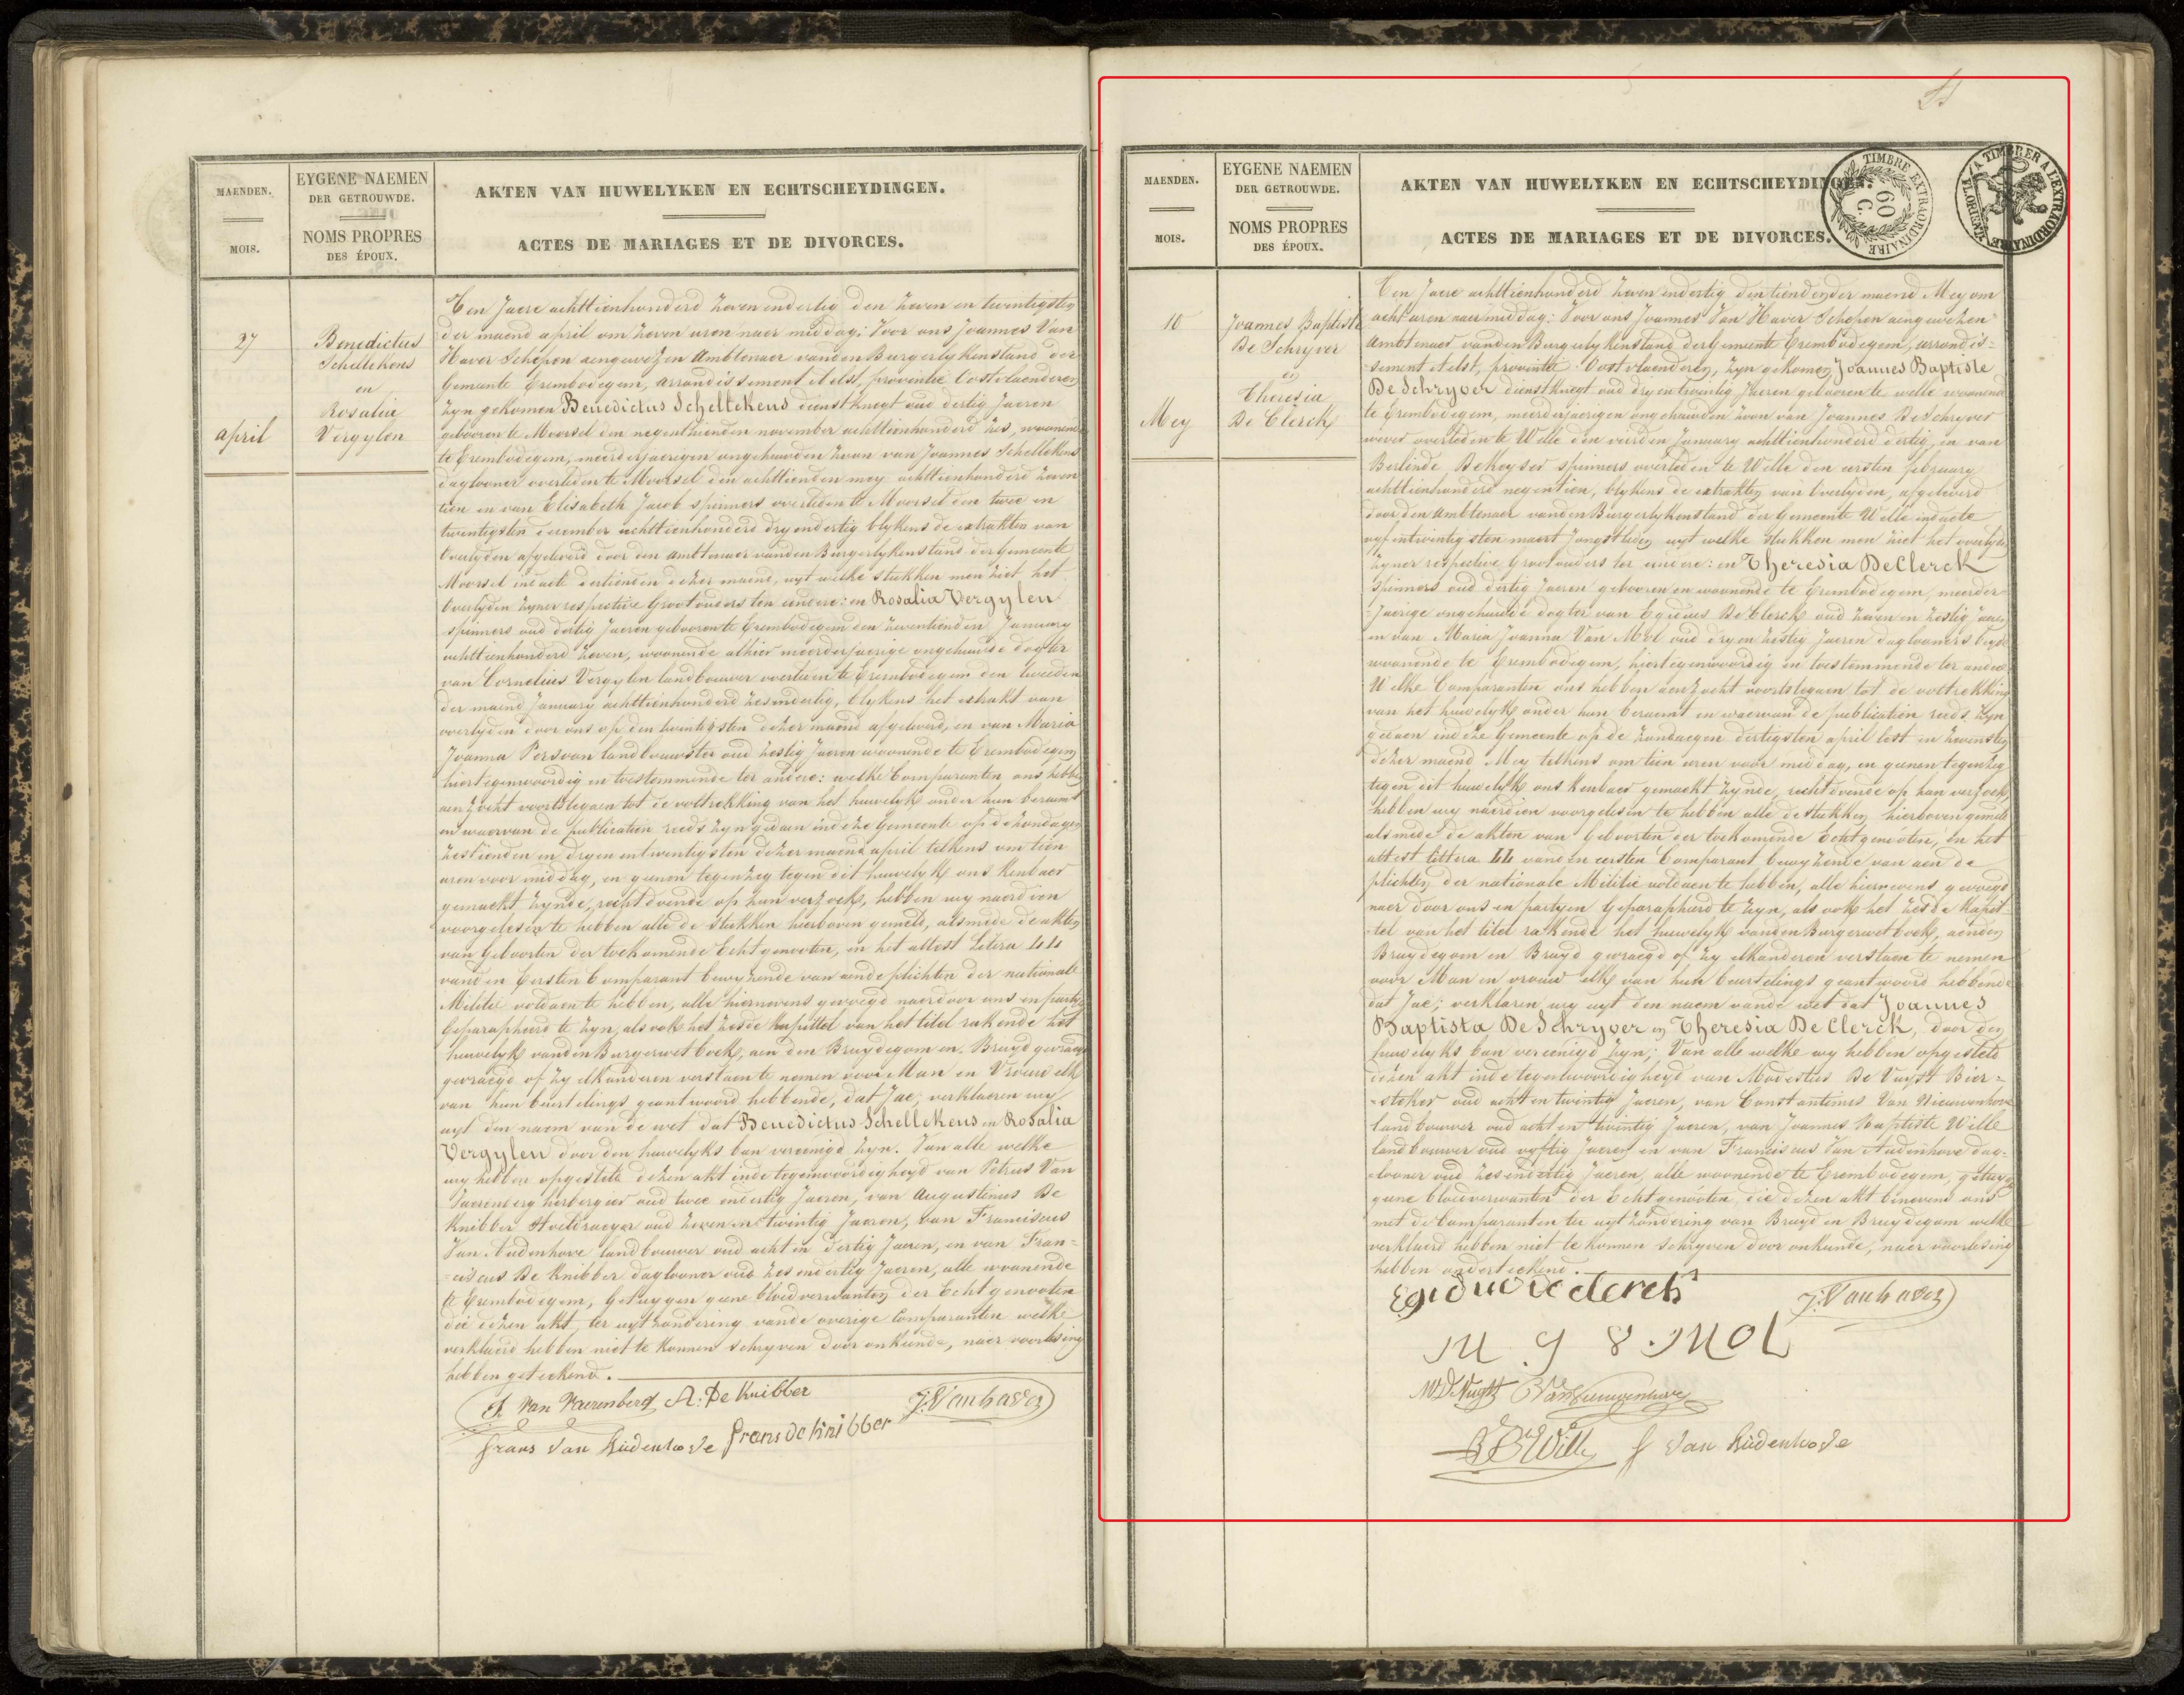 MAENDEN.
MOIS.
EYGENE NAEMEN
DER GETROUWDE.
NOMS PROPRES
DES ÉPOUX.
AKTEN VAN HUWELYKEN EN ECHTSCHEYDINGEN.
ACTES DE MARIAGES ET DE DIVORCES.
27
april
Benedictus
Schellekens
en
Rosalia
Vergylen
Ten Jaere achttienhonderd zeven endertig den zeven en twintigsten
der maend april om zeven uren naer middag: Voor ons Joannes Van
Haver Schepen aengewezen Ambtenaer vanden Burgerlykenstand der
Gemeente Erembodegem, Arrondissement Aelst, provintie Oostvlaenderen
zyn gekomen Benedictus Schellekens dienstknegt oud dertig Jaeren
gebooren te Moorsel den negenthienden november achttienhonderd zes, woonende
te Erembodegem, meerderjaerigen ongehuwden zoon van Joannes Schellekens
daglooner overleden te Moorsel den achttienden mey achttienhonderd zeven
tien en van Elisabeth Jacob spinners overleden te Moorsel den twee en
twintigsten december achttienhonderd dryendertig blykens de extrakten van
Overlyden afgeleverd door den Ambtenaer vanden Burgerlykenstand der Gemeente
Moorsel in dacte dertienden dezer maend, uyt welke stukken men ziet het
Overlyden zyner respective Grootouders ten andere: en Rosalia Vergylen
spinners oud dertig Jaeren gebooren te Erembodegem den zeventienden January
achttienhonderd zeven, woonende alhier meerderjaerige ongehuwde dogter
van Cornelius Vergylen landbouwer overleden te Erembodegem den tweeden
der maend January achttienhonderd zesendertig, blykens het extrakt van
overlyden door ons op den twintigsten dezer maend afgeleverd, en van Maria
Joanna Persoon landbouwster oud zestig Jaeren woonende te Erembodegem
hiertegenwoordig en toestemmende ter andere: welke Comparanten ons hebben
aenzocht voortstegaen tot de voltrekking van het huwelyk onder hun beraemt
en waervan de publication reeds zyn gedaen in deze Gemeente op de zondagen
zestienden en dryen entwintigsten dezer maend april telkens om tien
uren voor middag, en geenen tegenzeg tegen dit huwelyk ons kenbaer
gemaekt zynde, rechtdoende op hun verzoek, hebben wy naerdien
voorgelesen te hebben alle de stukken hierboven gemeld, alsmede de akten
van Geboorten der toekomende Echtgenooten, en het attest Litera LL
vanden Eersten Comparant bewyzende van aen de plichten der nationale
Militie voldaen te hebben, alle hiernevens gevoegd naerdoor ons en partyen
Geparapheerd te zyn, als ook het zesde kapittel van het titel rakende het
huwelyk vanden Burgerwetboek, aen den Bruydegom en Bruyd gevraegd
gevraegd of zy elkanderen verstaen te nemen voor Man en Vrouw elk
van hun beurtelings geantwoord hebbende, dat Jae; verklaeren wy
uyt den naem van de wet dat Benedictus Schellekens en Rosalia
Vergylen door den huwelyks ban vereenigd zyn. Van alle welke
wy hebben opgesteld dezen akt inde tegenwoordigheyd van Petrus Van
Vaerenberg herbergier oud twee endertig Jaeren, van Augustinus De
Knibber oud zeven en twintig Jaeren, van Franciscus
Van Audenhove landbouwer oud acht en dertig Jaeren, en van Fran=
=ciscus De Knibber daglooner oud zes endertig Jaeren, alle woonende
te Erembodegem, Getuygen geene bloedverwanten der Echtgenooten
die dezen akt, ter uytzondering vande overige Comparanten welke
verklaerd hebben niet te konnen schryven door onkunde, naer voorlesing
hebben geteekend.
P. Van Vaerenberg A: De Knibber J: Vanhaver
frans Van Audenhove frans de knibber
MAENDEN.
MOIS.
EYGENE NAEMEN
DER GETROUWDE.
NOMS PROPRES
DES ÉPOUX.
AKTEN VAN HUWELYKEN EN ECHTSCHEYDINGEN.
ACTES DE MARIAGES ET DE DIVORCES.
TIMBRE EXTRAORDINAIRE
60 C.
A TIMBRER A L'EXTRAORDINAIRE
10
Mey
Joannes Baptiste
De Schryver
en
Theresia
De Clerck
Ten Jaere achttienhonderd zeven endertig den tienden der maend Mey om
acht uren naer middag: Voor ons Joannes Van Haver Schepen aengewezen
Ambtenaer vanden Burgerlykenstand der Gemeente Erembodegem, arrondis=
sement Aelst, provintie Oostvlaenderen, zyn gekomen Joannes Baptiste
De Schryver dienstknegt oud dry en twintig Jaeren gebooren te Welle woonende
te Erembodegem, meerderjaerigen ongehuwden zoon van Joannes De Schryver
wever overleden te Welle den vierden January achttienhonderd dertig, en van
Berlinde De Keyser spinners overleden te Welle den eersten february
achttienhonderd negentien, blykens de extrakten van Overlyden, afgeleverd
door den Ambtenaer vanden Burgerlykenstand der Gemeente Welle in dacte
vyf entwintigsten maert Jongstleden uyt welke stukken men ziet het overlyden
zyner respective Grootouders ter eendere: en Theresia De Clerck
spinners oud dertig Jaeren gebooren en woonende te Erembodegem, meerder=
Jaerige ongehuwde dogter van Egidius De Clerck oud zeven en zestig Jaeren
en van Maria Joanna Van Mol oud dry en zestig Jaeren daglooners beyde
woonende te Erembodegem, hiertegenwoordig en toestemmende ter andere
Welke Comparanten ons hebben aenzocht voortstegaen tot de voltrekking
van het huwelyk onder hun beraemt en waervan de publication reeds zyn
gedaen in deze Gemeente op de zondaegen dertigsten april lest en zevensten
dezer maend Mey telkens om tien uren voor middag, en geenen tegenzeg
tegen dit huwelyk ons kenbaer gemaekt zynde, rechtdoende op hun verzoek,
hebben wy naerdien voorgelesen te hebben alle de stukken hierboven gemeld
alsmede de akten van Geboorten der toekomende Echtgenooten, en het
attest littera LL vanden eersten Comparant bewyzende van aen de
plichten der nationale Militie voldaen te hebben, alle hiernevens gevoegd
naer door ons en partyen Geparapheerd te zyn, als ook het zesde kapit=
=tel van het titel rakende het huwelyk vanden Burgerwetboek, aenden
Bruydegom en Bruyd gevraegd of zy elkanderen verstaen te nemen
voor Man en vrouw elk van hun beurtelings geantwoord hebbende
dat Jae; verklaren wy uyt den naem vande wet dat Joannes
Baptista De Schryver en Theresia De Clerck, door den
huwelyks ban vereenigd zyn; Van alle welke wy hebben opgesteld
dezen akt inde tegenwoordigheyd van Modestus De Vuyst Bier=
=stoker oud acht en twintig Jaeren, van Constantinus Van Nieuwenhove
landbouwer oud acht en twintig Jaeren, van Joannes Baptiste Wille
landbouwer oud vyftig Jaeren en van Franciscus Van Audenhove dag=
=looner oud zesendertig Jaeren, alle woonende te Erembodegem, getuygen
geene bloedverwanten der Echtgenooten, die dezen akt benevens ons
met de Comparanten ter uytzondering van Bruyd en Bruydegom welke
verklaerd hebben niet te konnen schryven door onkunde, naer voorlesing
hebben onderteekend.
Egidus de clerck J: Vanhaver
M J V MOL
MD Vuyst C Van Nieuwenhove
J B Wille f Van Audenhove